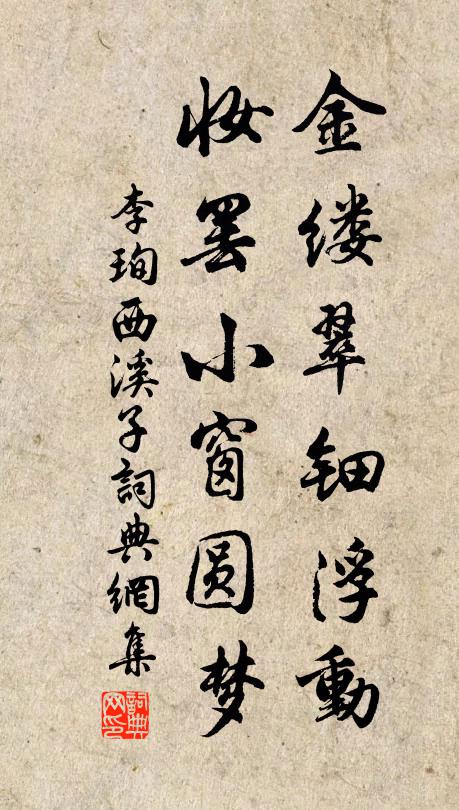 金缕翠钿浮動
妆罢小窗圆梦
李珣西溪子詞典網集
詞典网印